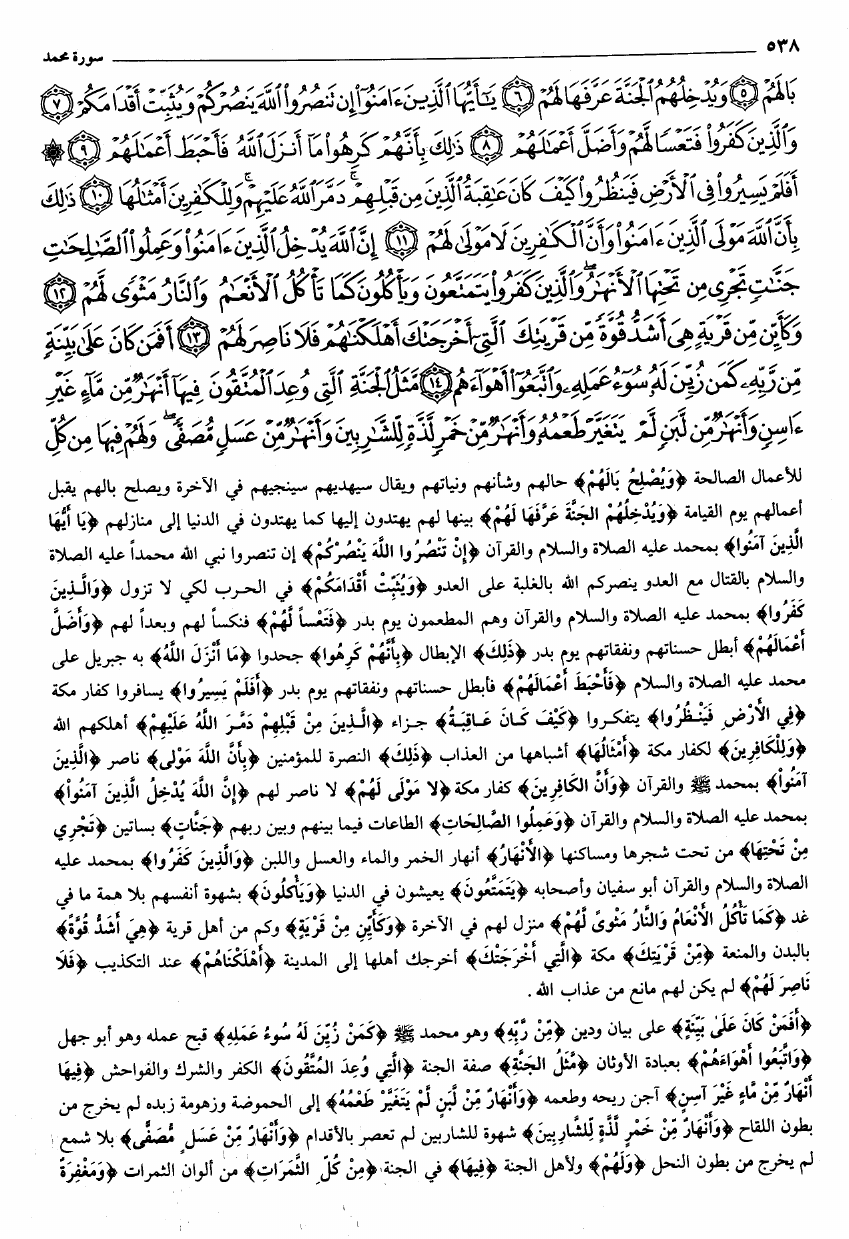 ٥٣٨
سورة محمد
بَالَهُمْ ٥ وَيُدْخِلُهُمُ ٱلْجَنَّةَ عَرَّفَهَا لَهُمْ ٦ يَٰٓأَيُّهَا ٱلَّذِينَ ءَامَنُوٓا۟ إِن تَنصُرُوا۟ ٱللَّهَ يَنصُرْكُمْ وَيُثَبِّتْ أَقْدَامَكُمْ ٧
وَٱلَّذِينَ كَفَرُوا۟ فَتَعْسًا لَّهُمْ وَأَضَلَّ أَعْمَٰلَهُمْ ٨ ذَٰلِكَ بِأَنَّهُمْ كَرِهُوا۟ مَآ أَنزَلَ ٱللَّهُ فَأَحْبَطَ أَعْمَٰلَهُمْ ٩ ۞
أَفَلَمْ يَسِيرُوا۟ فِى ٱلْأَرْضِ فَيَنظُرُوا۟ كَيْفَ كَانَ عَٰقِبَةُ ٱلَّذِينَ مِن قَبْلِهِمْ ۚ دَمَّرَ ٱللَّهُ عَلَيْهِمْ ۖ وَلِلْكَٰفِرِينَ أَمْثَٰلُهَا ١٠ ذَٰلِكَ
بِأَنَّ ٱللَّهَ مَوْلَى ٱلَّذِينَ ءَامَنُوا۟ وَأَنَّ ٱلْكَٰفِرِينَ لَا مَوْلَىٰ لَهُمْ ١١ إِنَّ ٱللَّهَ يُدْخِلُ ٱلَّذِينَ ءَامَنُوا۟ وَعَمِلُوا۟ ٱلصَّٰلِحَٰتِ
جَنَّٰتٍ تَجْرِى مِن تَحْتِهَا ٱلْأَنْهَٰرُ ۖ وَٱلَّذِينَ كَفَرُوا۟ يَتَمَتَّعُونَ وَيَأْكُلُونَ كَمَا تَأْكُلُ ٱلْأَنْعَٰمُ وَٱلنَّارُ مَثْوًى لَّهُمْ ١٢
وَكَأَيِّن مِّن قَرْيَةٍ هِىَ أَشَدُّ قُوَّةً مِّن قَرْيَتِكَ ٱلَّتِىٓ أَخْرَجَتْكَ أَهْلَكْنَٰهُمْ فَلَا نَاصِرَ لَهُمْ ١٣ أَفَمَن كَانَ عَلَىٰ بَيِّنَةٍ
مِّن رَّبِّهِۦ كَمَن زُيِّنَ لَهُۥ سُوٓءُ عَمَلِهِۦ وَٱتَّبَعُوٓا۟ أَهْوَآءَهُم ١٤ مَّثَلُ ٱلْجَنَّةِ ٱلَّتِى وُعِدَ ٱلْمُتَّقُونَ فِيهَآ أَنْهَٰرٌ مِّن مَّآءٍ غَيْرِ
ءَاسِنٍ وَأَنْهَٰرٌ مِّن لَّبَنٍ لَّمْ يَتَغَيَّرْ طَعْمُهُۥ وَأَنْهَٰرٌ مِّنْ خَمْرٍ لَّذَّةٍ لِّلشَّٰرِبِينَ وَأَنْهَٰرٌ مِّنْ عَسَلٍ مُّصَفًّى ۖ وَلَهُمْ فِيهَا مِن كُلِّ
للأعمال الصالحة ﴿وَيُصْلِحُ بَالَهُمْ﴾ حالهم وشأنهم ونياتهم ويقال سيهديهم سينجيهم في الآخرة ويصلح بالهم يقبل
أعمالهم يوم القيامة ﴿وَيُدْخِلُهُمْ الجَنَّةَ عَرَّفَهَا لَهُمْ﴾ بينها لهم يهتدون إليها كما يهتدون في الدنيا إلى منازلهم ﴿يَا أَيُّهَا
الَّذِينَ آمَنُوا﴾ بمحمد عليه الصلاة والسلام والقرآن ﴿إِنْ تَنْصُرُوا اللَّهَ يَنْصُرْكُمْ﴾ إن تنصروا نبي الله محمداً عليه الصلاة
والسلام بالقتال مع العدو ينصركم الله بالغلبة على العدو ﴿وَيُثَبِّتْ أَقْدَامَكُمْ﴾ في الحرب لكي لا تزول ﴿وَالَّذِينَ
كَفَرُوا﴾ بمحمد عليه الصلاة والسلام والقرآن وهم المطعمون يوم بدر ﴿فَتَعْساً لَّهُمْ﴾ فنكساً لهم وبعداً لهم ﴿وَأَضَلَّ
أَعْمَالَهُمْ﴾ أبطل حسناتهم ونفقاتهم يوم بدر ﴿ذَلِكَ﴾ الإبطال ﴿بِأَنَّهُمْ كَرِهُوا﴾ جحدوا ﴿مَا أَنْزَلَ اللَّهُ﴾ به جبريل على
محمد عليه الصلاة والسلام ﴿فَأَحْبَطَ أَعْمَالَهُمْ﴾ فأبطل حسناتهم ونفقاتهم يوم بدر ﴿أَفَلَمْ يَسِيرُوا﴾ يسافروا كفار مكة
﴿فِي الأَرْضِ فَيَنْظُرُوا﴾ يتفكروا ﴿كَيْفَ كَانَ عَاقِبَةُ﴾ جزاء ﴿الَّذِينَ مِنْ قَبْلِهِمْ دَمَّرَ اللَّهُ عَلَيْهِمْ﴾ أهلكهم الله
﴿وَلِلْكَافِرِينَ﴾ لكفار مكة ﴿أَمْثَالُهَا﴾ أشباهها من العذاب ﴿ذَلِكَ﴾ النصرة للمؤمنين ﴿بِأَنَّ اللَّهَ مَوْلَى﴾ ناصر ﴿الَّذِينَ
آمَنُواْ﴾ بمحمد ﷺ والقرآن ﴿وَأَنَّ الكَافِرِينَ﴾ كفار مكة ﴿لا مَوْلَى لَهُمْ﴾ لا ناصر لهم ﴿إِنَّ اللَّهَ يُدْخِلُ الَّذِينَ آمَنُواْ﴾
بمحمد عليه الصلاة والسلام والقرآن ﴿وَعَمِلُوا الصَّالِحَاتِ﴾ الطاعات فيما بينهم وبين ربهم ﴿جَنَّاتٍ﴾ بساتين ﴿تَجْرِي
مِنْ تَحْتِهَا﴾ من تحت شجرها ومساكنها ﴿الأَنْهَارُ﴾ أنهار الخمر والماء والعسل واللبن ﴿وَالَّذِينَ كَفَرُوا﴾ بمحمد عليه
الصلاة والسلام والقرآن أبو سفيان وأصحابه ﴿يَتَمَتَّعُونَ﴾ يعيشون في الدنيا ﴿وَيَأْكُلُونَ﴾ بشهوة أنفسهم بلا همة ما في
غد ﴿كَمَا تَأْكُلُ الأَنْعَامُ وَالنَّارُ مَثْوىً لَّهُمْ﴾ منزل لهم في الآخرة ﴿وَكَأَيِّن مِنْ قَرْيَةٍ﴾ وكم من أهل قرية ﴿هِيَ أَشَدُّ قُوَّةً﴾
بالبدن والمنعة ﴿مِّنْ قَرْيَتِكَ﴾ مكة ﴿الَّتِي أَخْرَجَتْكَ﴾ أخرجك أهلها إلى المدينة ﴿أَهْلَكْنَاهُمْ﴾ عند التكذيب ﴿فَلَا
نَاصِرَ لَهُمْ﴾ لم يكن لهم مانع من عذاب الله .
﴿أَفَمَنْ كَانَ عَلَىٰ بَيِّنَةٍ﴾ على بيان ودين ﴿مِّنْ رَّبِّهِ﴾ وهو محمد ﷺ ﴿كَمَنْ زُيِّنَ لَهُ سُوءُ عَمَلِهِ﴾ قبح عمله وهو أبو جهل
﴿وَاتَّبَعُوا أَهْوَاءَهُمْ﴾ بعبادة الأوثان ﴿مَّثَلُ الجَنَّةِ﴾ صفة الجنة ﴿الَّتِي وُعِدَ المُتَّقُونَ﴾ الكفر والشرك والفواحش ﴿فِيهَا
أَنْهَارٌ مِّنْ مَّاءٍ غَيْرَ آسِنٍ﴾ آجن ريحه وطعمه ﴿وَأَنْهَارٌ مِّنْ لَبَنٍ لَمْ يَتَغَيَّرْ طَعْمُهُ﴾ إلى الحموضة وزهومة زبده لم يخرج من
بطون اللقاح ﴿وَأَنْهَارٌ مِّنْ خَمْرٍ لَذَّةٍ لِّلشَّارِبِينَ﴾ شهوة للشاربين لم تعصر بالأقدام ﴿وَأَنْهَارٌ مِّنْ عَسَلٍ مُّصَفًّى﴾ بلا شمع
لم يخرج من بطون النحل ﴿وَلَهُمْ﴾ ولأهل الجنة ﴿فِيهَا﴾ في الجنة ﴿مِنْ كُلِّ الثَّمَرَاتِ﴾ من ألوان الثمرات ﴿وَمَغْفِرَةٌ